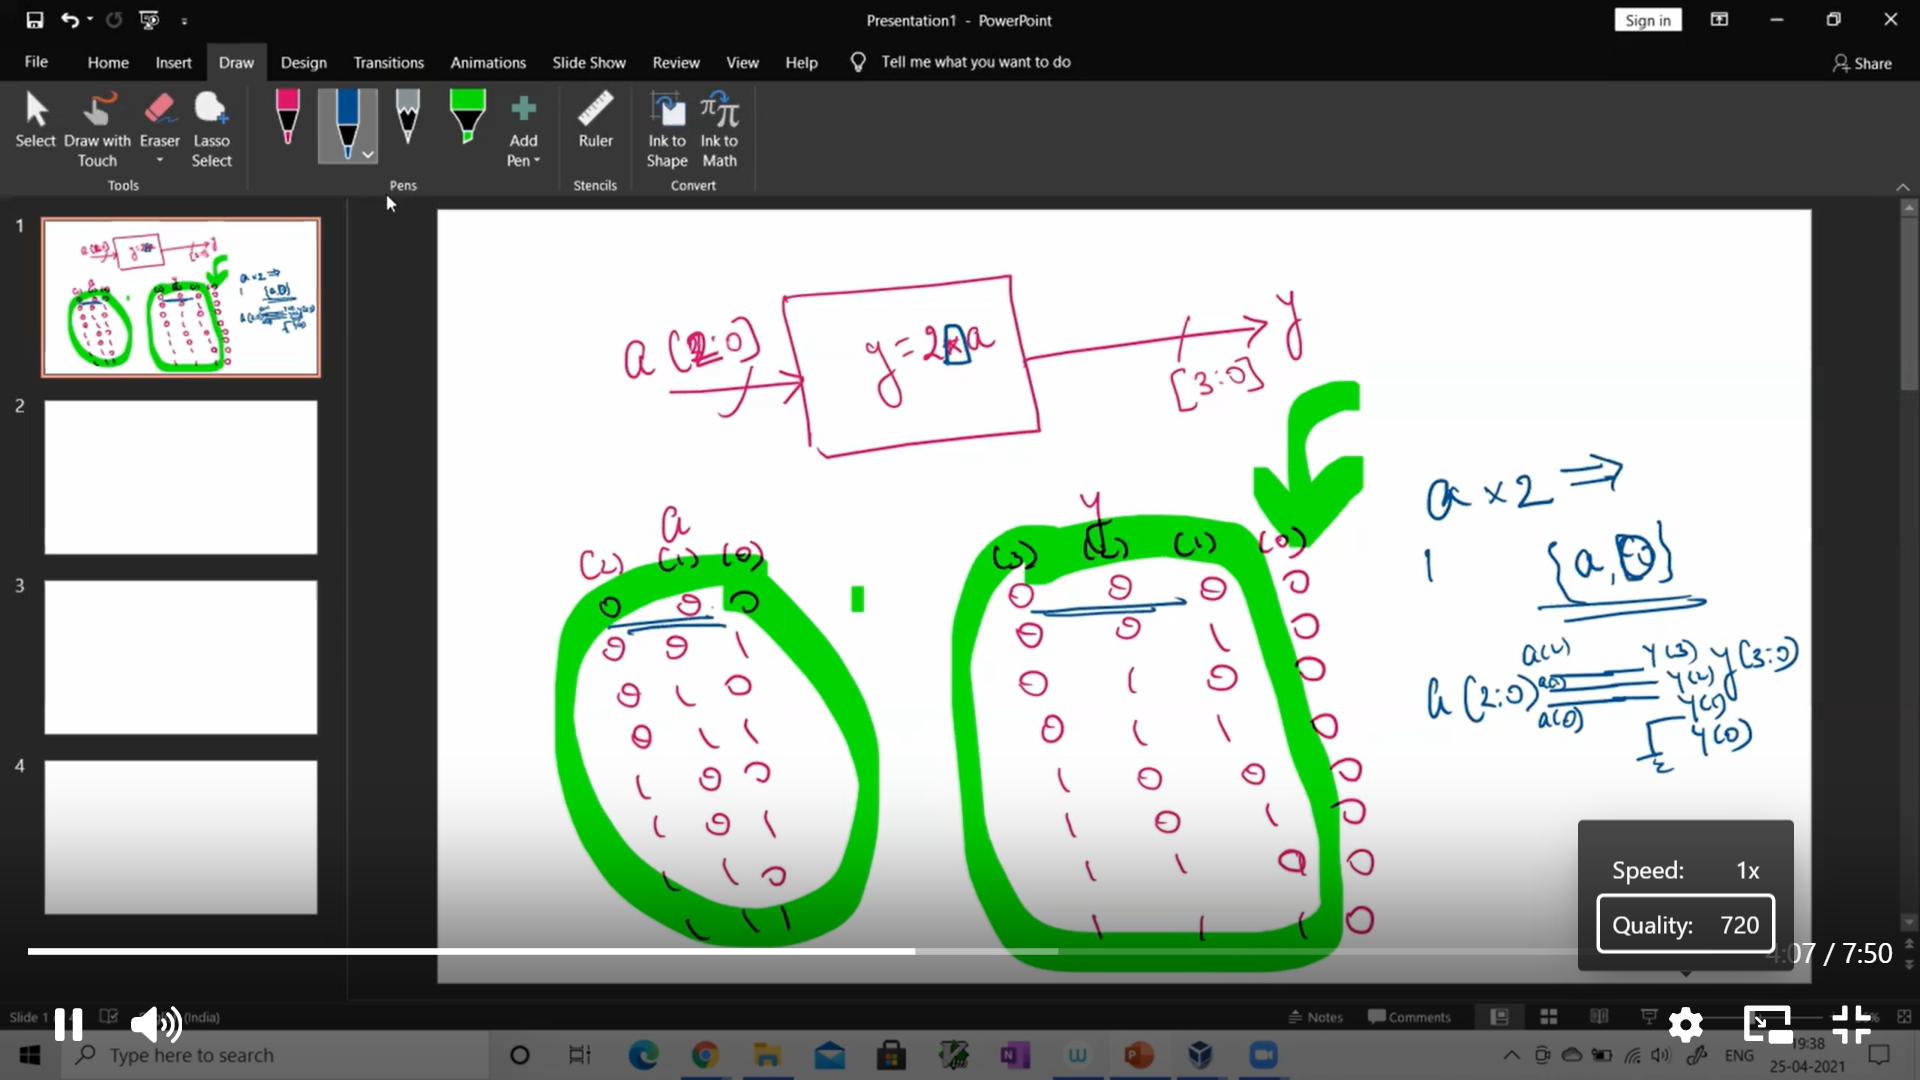 Presentation1 - PowerPoint
Sign in
File Home Insert Draw Design Transitions Animations Slide Show Review View Help Tell me what you want to do
Share
Select Draw with Touch Eraser Lasso Select Add Pen Ruler Ink to Shape Ink to Math
Tools Pens Stencils Convert
1
2
3
4
a (2:0)
y = 2*a
y
[3:0]
a
(2) (1) (0)
0 0 0
0 0 1
0 1 0
0 1 1
1 0 0
1 0 1
1 1 0
1 1 1
y
(3) (2) (1) (0)
0 0 0 0
0 0 1 0
0 1 0 0
0 1 1 0
1 0 0 0
1 0 1 0
1 1 0 0
1 1 1 0
a × 2 ⇒
{a, 0}
a(2) y(3) y(3:0)
a(2:0) a(1) y(2)
a(0) y(1)
y(0)
Speed: 1x
Quality: 720
4:07 / 7:50
Slide 1
(India)
Notes Comments
Type here to search
ENG
19:38
25-04-2021